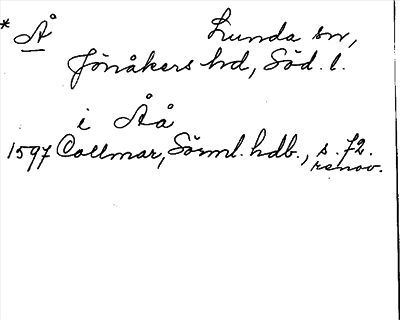 * Å Lunda sn,
Jönåkers hd, Söd. l.
i Åå
1597 Collmar, Sörml. hdb., s. 72.
renov.